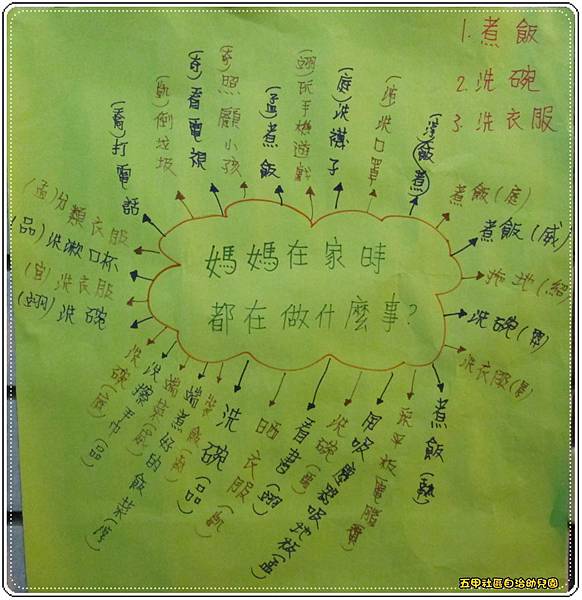 1. 煮飯
2. 洗碗
3. 洗衣服
媽媽在家時
都在做什麼事?
煮飯(庭)
煮飯(威)
拖地(紹)
洗碗
洗衣服
煮飯
用吸塵器吸地板(孟)
看書
洗碗
晒衣服(翊)
洗碗(品)
端煮好的飯菜
洗擦手巾(品)
洗碗(庭)
(翊)洗碗
(宜)洗衣服
(品)洗漱口杯
(孟)分類衣服
(喬)打電話
(凱)倒垃圾
(奇)看電視
(奇)照顧小孩
(孟)煮飯
(翊)玩手機遊戲
(庭)洗襪子
洗口罩
飯煮
五甲社區自治幼兒園